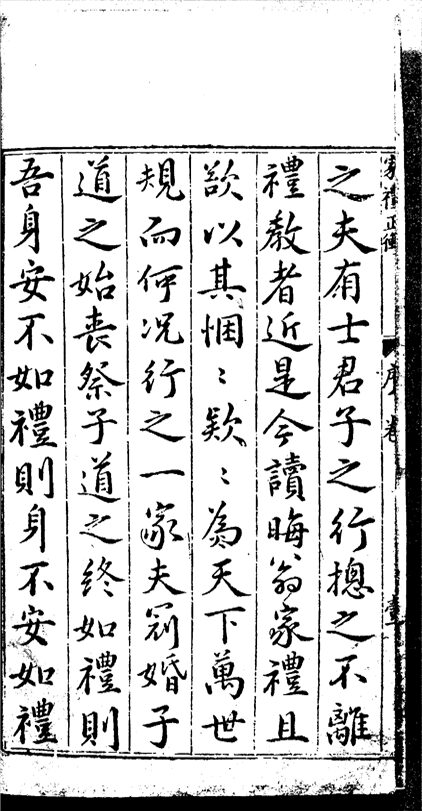 家禮正衡 序卷
之夫有士君子之行摠之不離
禮教者近是今讀晦翁家禮且
欲以其悃〻欵〻為天下萬世
規而何況行之一家夫冠婚子
道之始喪祭子道之終如禮則
吾身安不如禮則身不安如禮